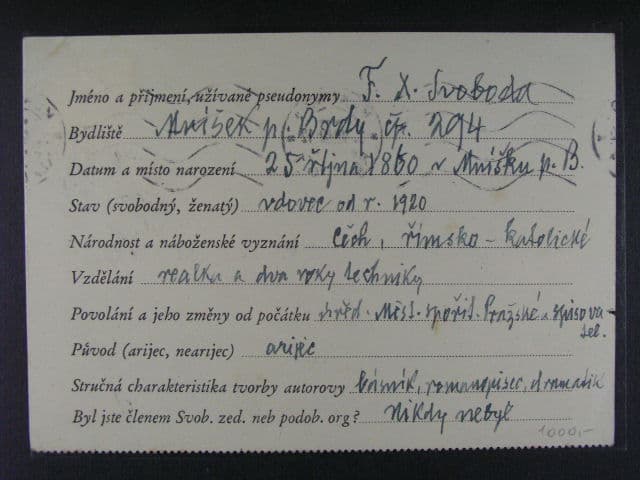 Jméno a příjmení, užívané pseudonymy F. X. Svoboda
Bydliště Mníšek p. Brdy čp. 294
Datum a místo narození 25 října 1860 v Mníšku p. B.
Stav (svobodný, ženatý) vdovec od r. 1920
Národnost a náboženské vyznání Čech, římsko-katolické
Vzdělání realka a dva roky techniky
Povolání a jeho změny od počátku úřed. Měst. spořit. Pražské a spisova-
tel.
Původ (arijec, nearijec) arijec
Stručná charakteristika tvorby autorovy básník, romanopisec, dramatik
Byl jste členem Svob. zed. neb podob. org? Nikdy nebyl
1000,-